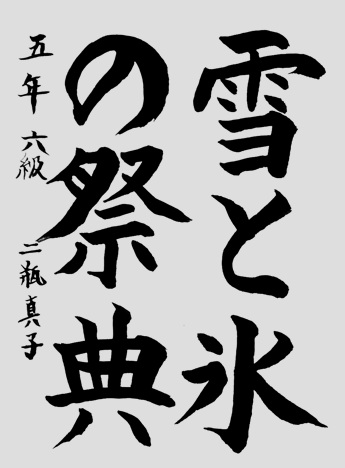 雪と氷
の祭典
五年 六級 二瓶真子